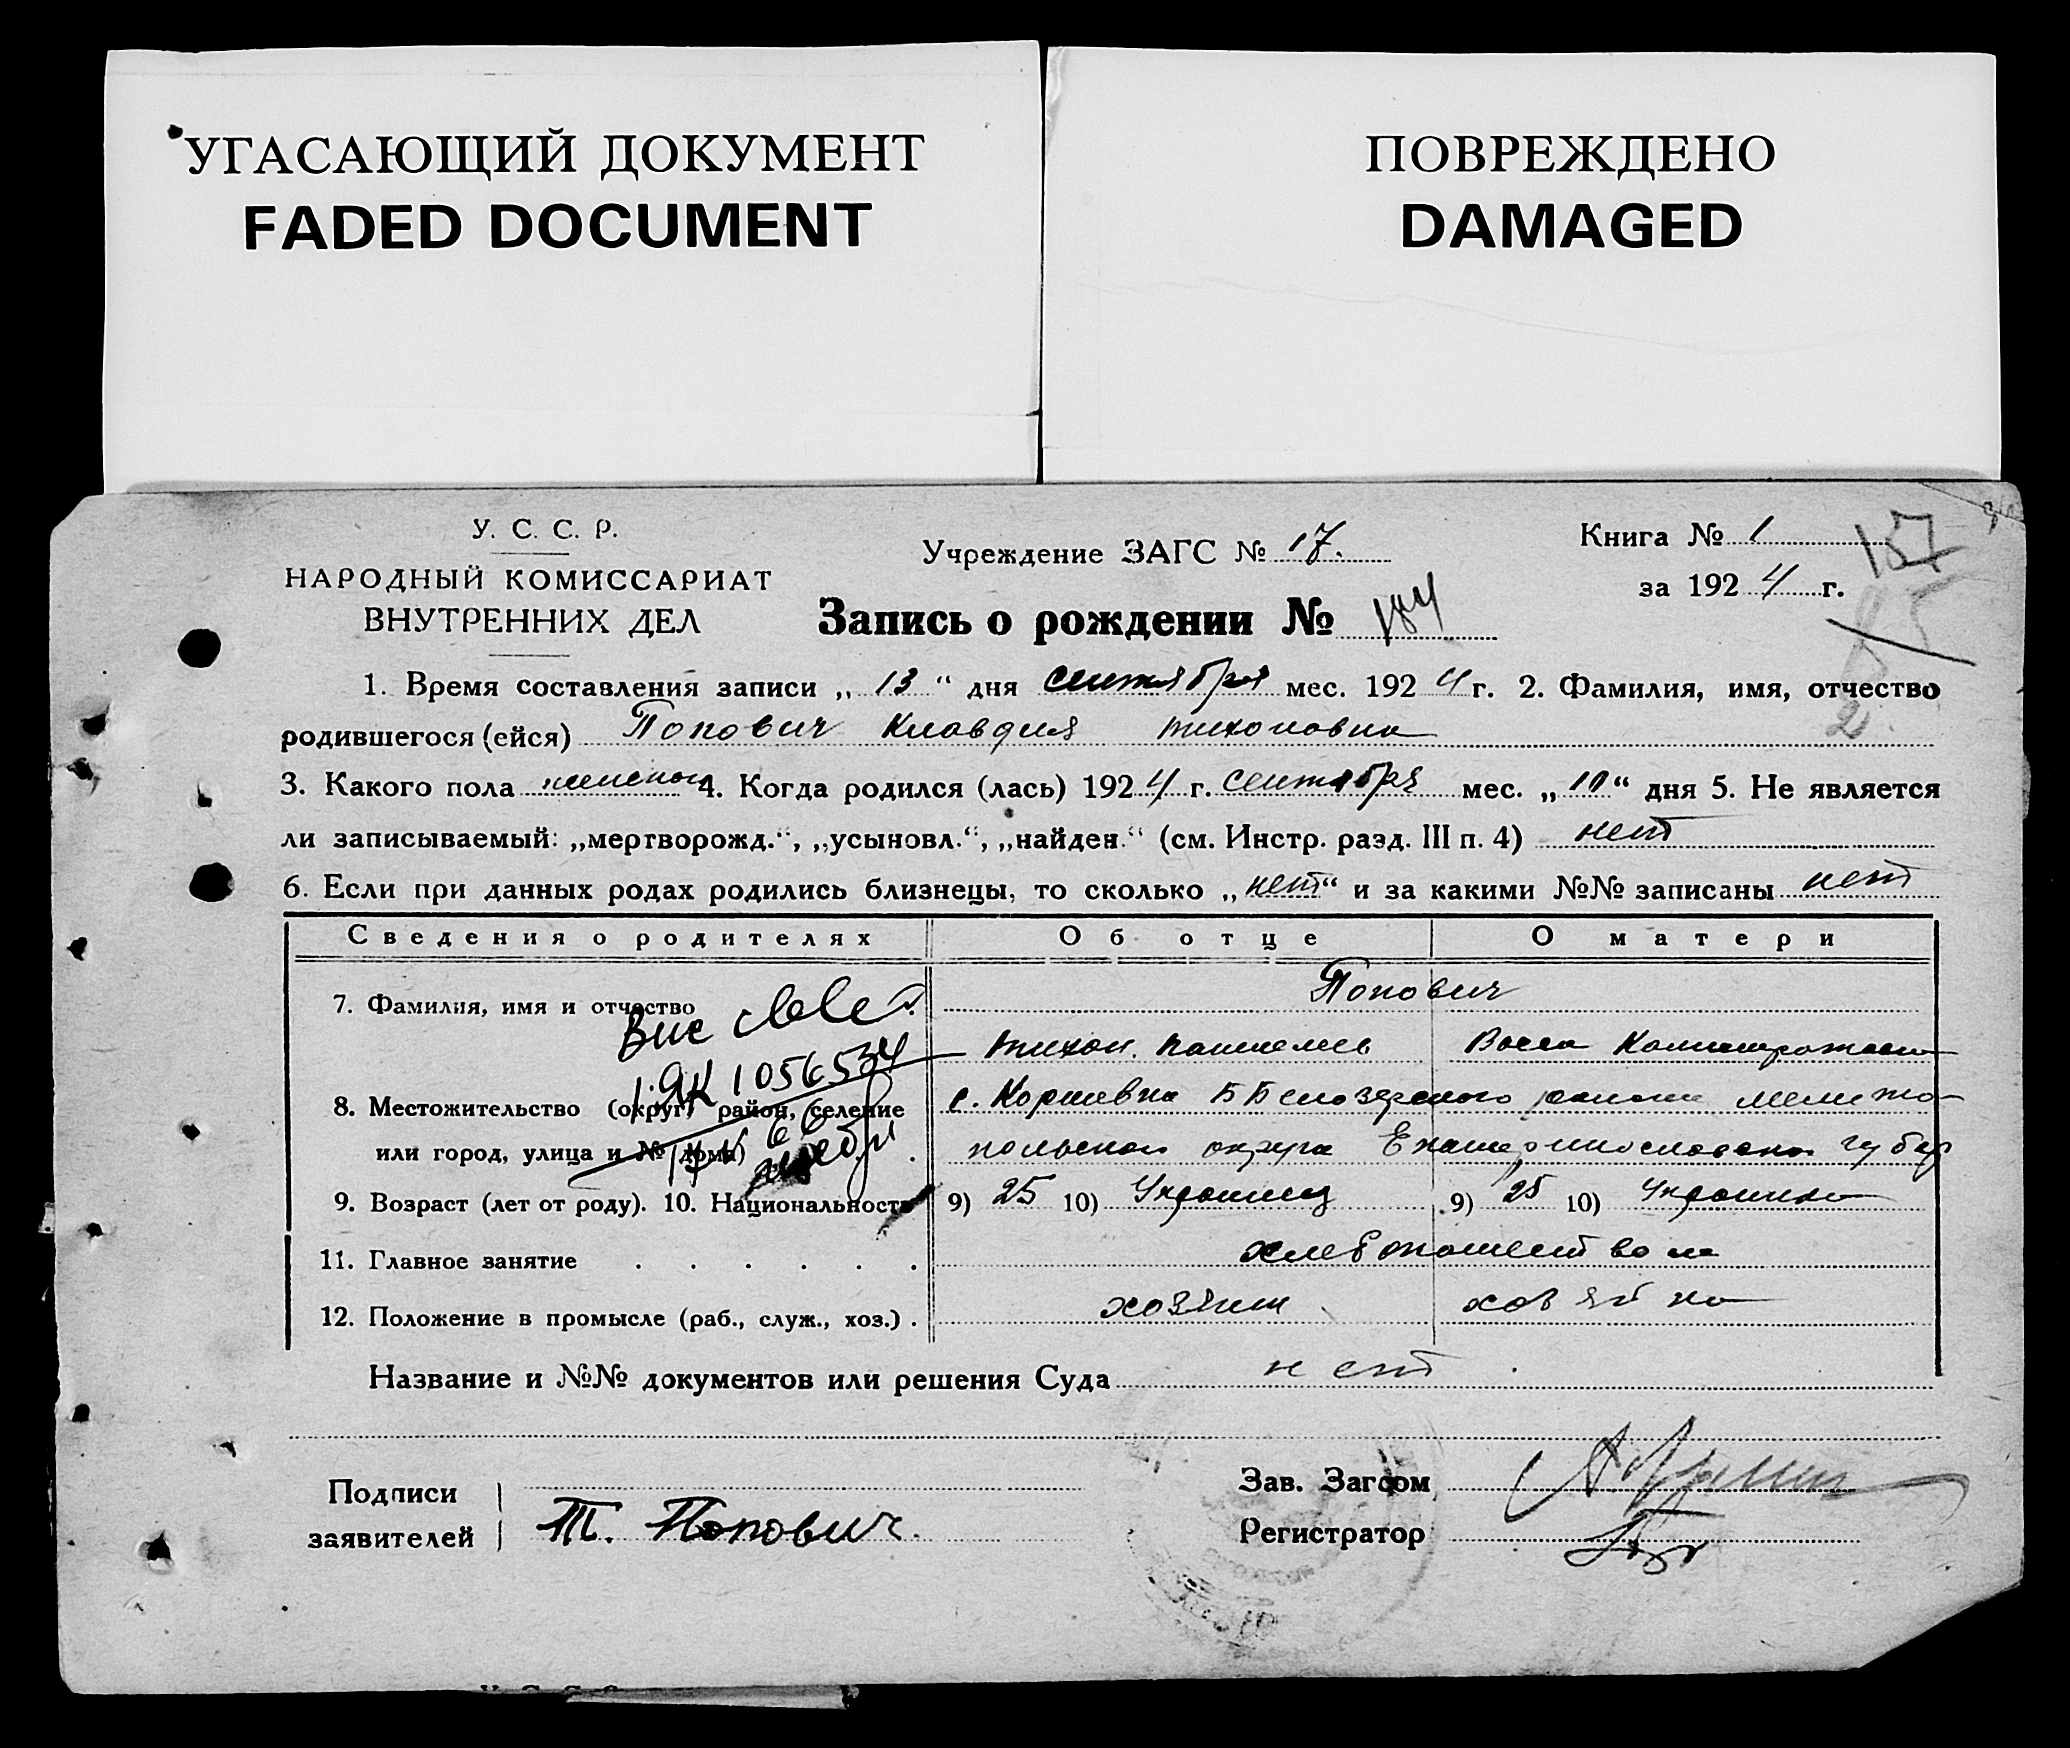 УГАСАЮЩИЙ ДОКУМЕНТ
FADED DOCUMENT
ПОВРЕЖДЕНО
DAMAGED
У. С. С. Р.
НАРОДНЫЙ КОМИССАРИАТ
ВНУТРЕННИХ ДЕЛ
Учреждение ЗАГС № 17.
Книга № 1
за 1924 г.
157
Запись о рождении № 184
1. Время составления записи „13“ дня сентября мес. 1924 г. 2. Фамилия, имя, отчество
родившегося (ейся) Попович Клавдия Тихоновна
3. Какого пола женского 4. Когда родился (лась) 1924 г. сентября мес. „10“ дня 5. Не является
ли записываемый: „мертворожд.“, „усыновл.“, „найден.“ (см. Инстр. разд. III п. 4) нет
6. Если при данных родах родились близнецы, то сколько „нет“ и за какими №№ записаны нет
Сведения о родителях Об отце О матери
7. Фамилия, имя и отчество Попович
Тихон Васса
1.ЯК 1056534
8. Местожительство (округ, район, селение с. Б Белозерского района мелито-
или город, улица и № дома) польского округа Екатеринославской губер
9. Возраст (лет от роду). 10. Национальность 9) 25 10) Украинец 9) 25 10) Украинка
11. Главное занятие хлебопашеством
12. Положение в промысле (раб., служ., хоз.) хозяин хозяйка
Название и №№ документов или решения Суда нет
Подписи
заявителей Т. Попович.
Зав. Загсом
Регистратор